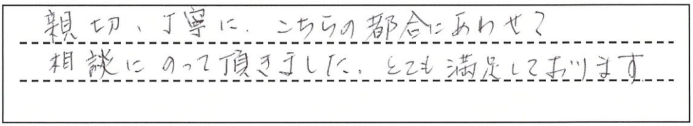 親切、丁寧に、こちらの都合にあわせて
相談にのって頂きました。とても満足しております